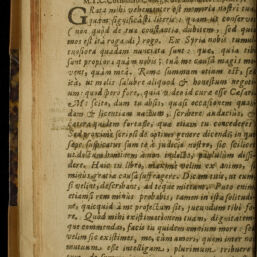 GRata mihi vehementer est memoria nostri tua,
quam significasti literis: quam ut conserves
(non quòd de tua constantia dubitem, sed quia
mos est ita rogandi) rogo. Ex Syria nobis tumul-
tuosiora quædam nunciata sunt: quæ, quia tibi
sunt propiora quàm nobis, tuâ me causâ magis mo-
vent, quàm meâ. Romæ summum otium est, sed
ita, ut malis salubre aliquod & honestum negoti-
um: quod spero fore, quia video id curæ esse Cæsari.
M. scito, dum tu absis, quasi occasionem quan-
dam & licentiam nactum, scribere audacius, &
cætera quidem fortasse, quæ etiam tu concederes:
Sed proximè scripsi de optimo genere dicendi, in quo
sæpe suspicatus sum te à judicio nostro, sic scilicet
ut doctum hominem à non indocto, paululum dissi-
dere. Huic tu libro, maximè velim ex animo, si
minus, gratiæ causâ suffragere. Dicam tuis, ut eum,
si velint, describant, ad teque mittant. Puto enim,
etiamsi rem minus probabis, tamen in ista solitudi-
ne, quicquid à me profectum sit, jucundum tibi fo-
re. Quòd mihi existimationem tuam, dignitatem-
que commendas, facis tu quidem omnium more: sed
velim sic existimes, me, cùm amori, quem inter nos
mutuum esse intelligam, plurimum tribuere,